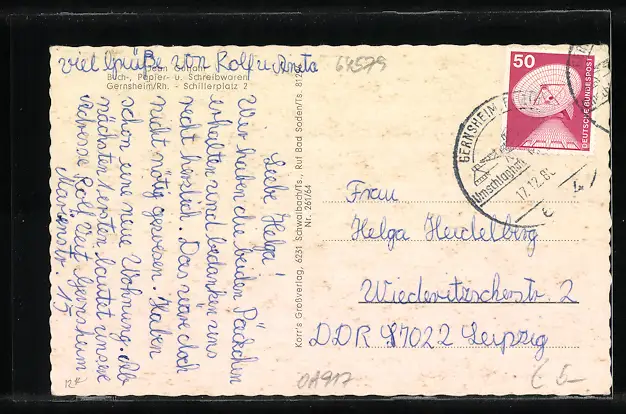 viel Grüße von Rolf u. Aneta
64579
Buch-, Papier- u. Schreibwaren
Gernsheim/Rh. - Schillerplatz 2
Liebe Helga!
Wir haben die beiden Päckchen
erhalten und bedanken uns
recht herzlich. Das wäre doch
nicht nötig gewesen. Haben
schon eine neue Wohnung. Ab
nächsten 1. ersten lautet unsere
Adresse Rolf Gernsheim
15
Korr's Großverlag, 6231 Schwalbach/Ts., Ruf Bad Soden/Ts. 812
Nr. 261/64
50
DEUTSCHE BUNDESPOST
GERNSHEIM
Umschlaghafen
17.12.8
Frau
Helga Heidelberg
Wiederitzscherstr. 2
DDR 87022 Leipzig
OA917
€ 5-